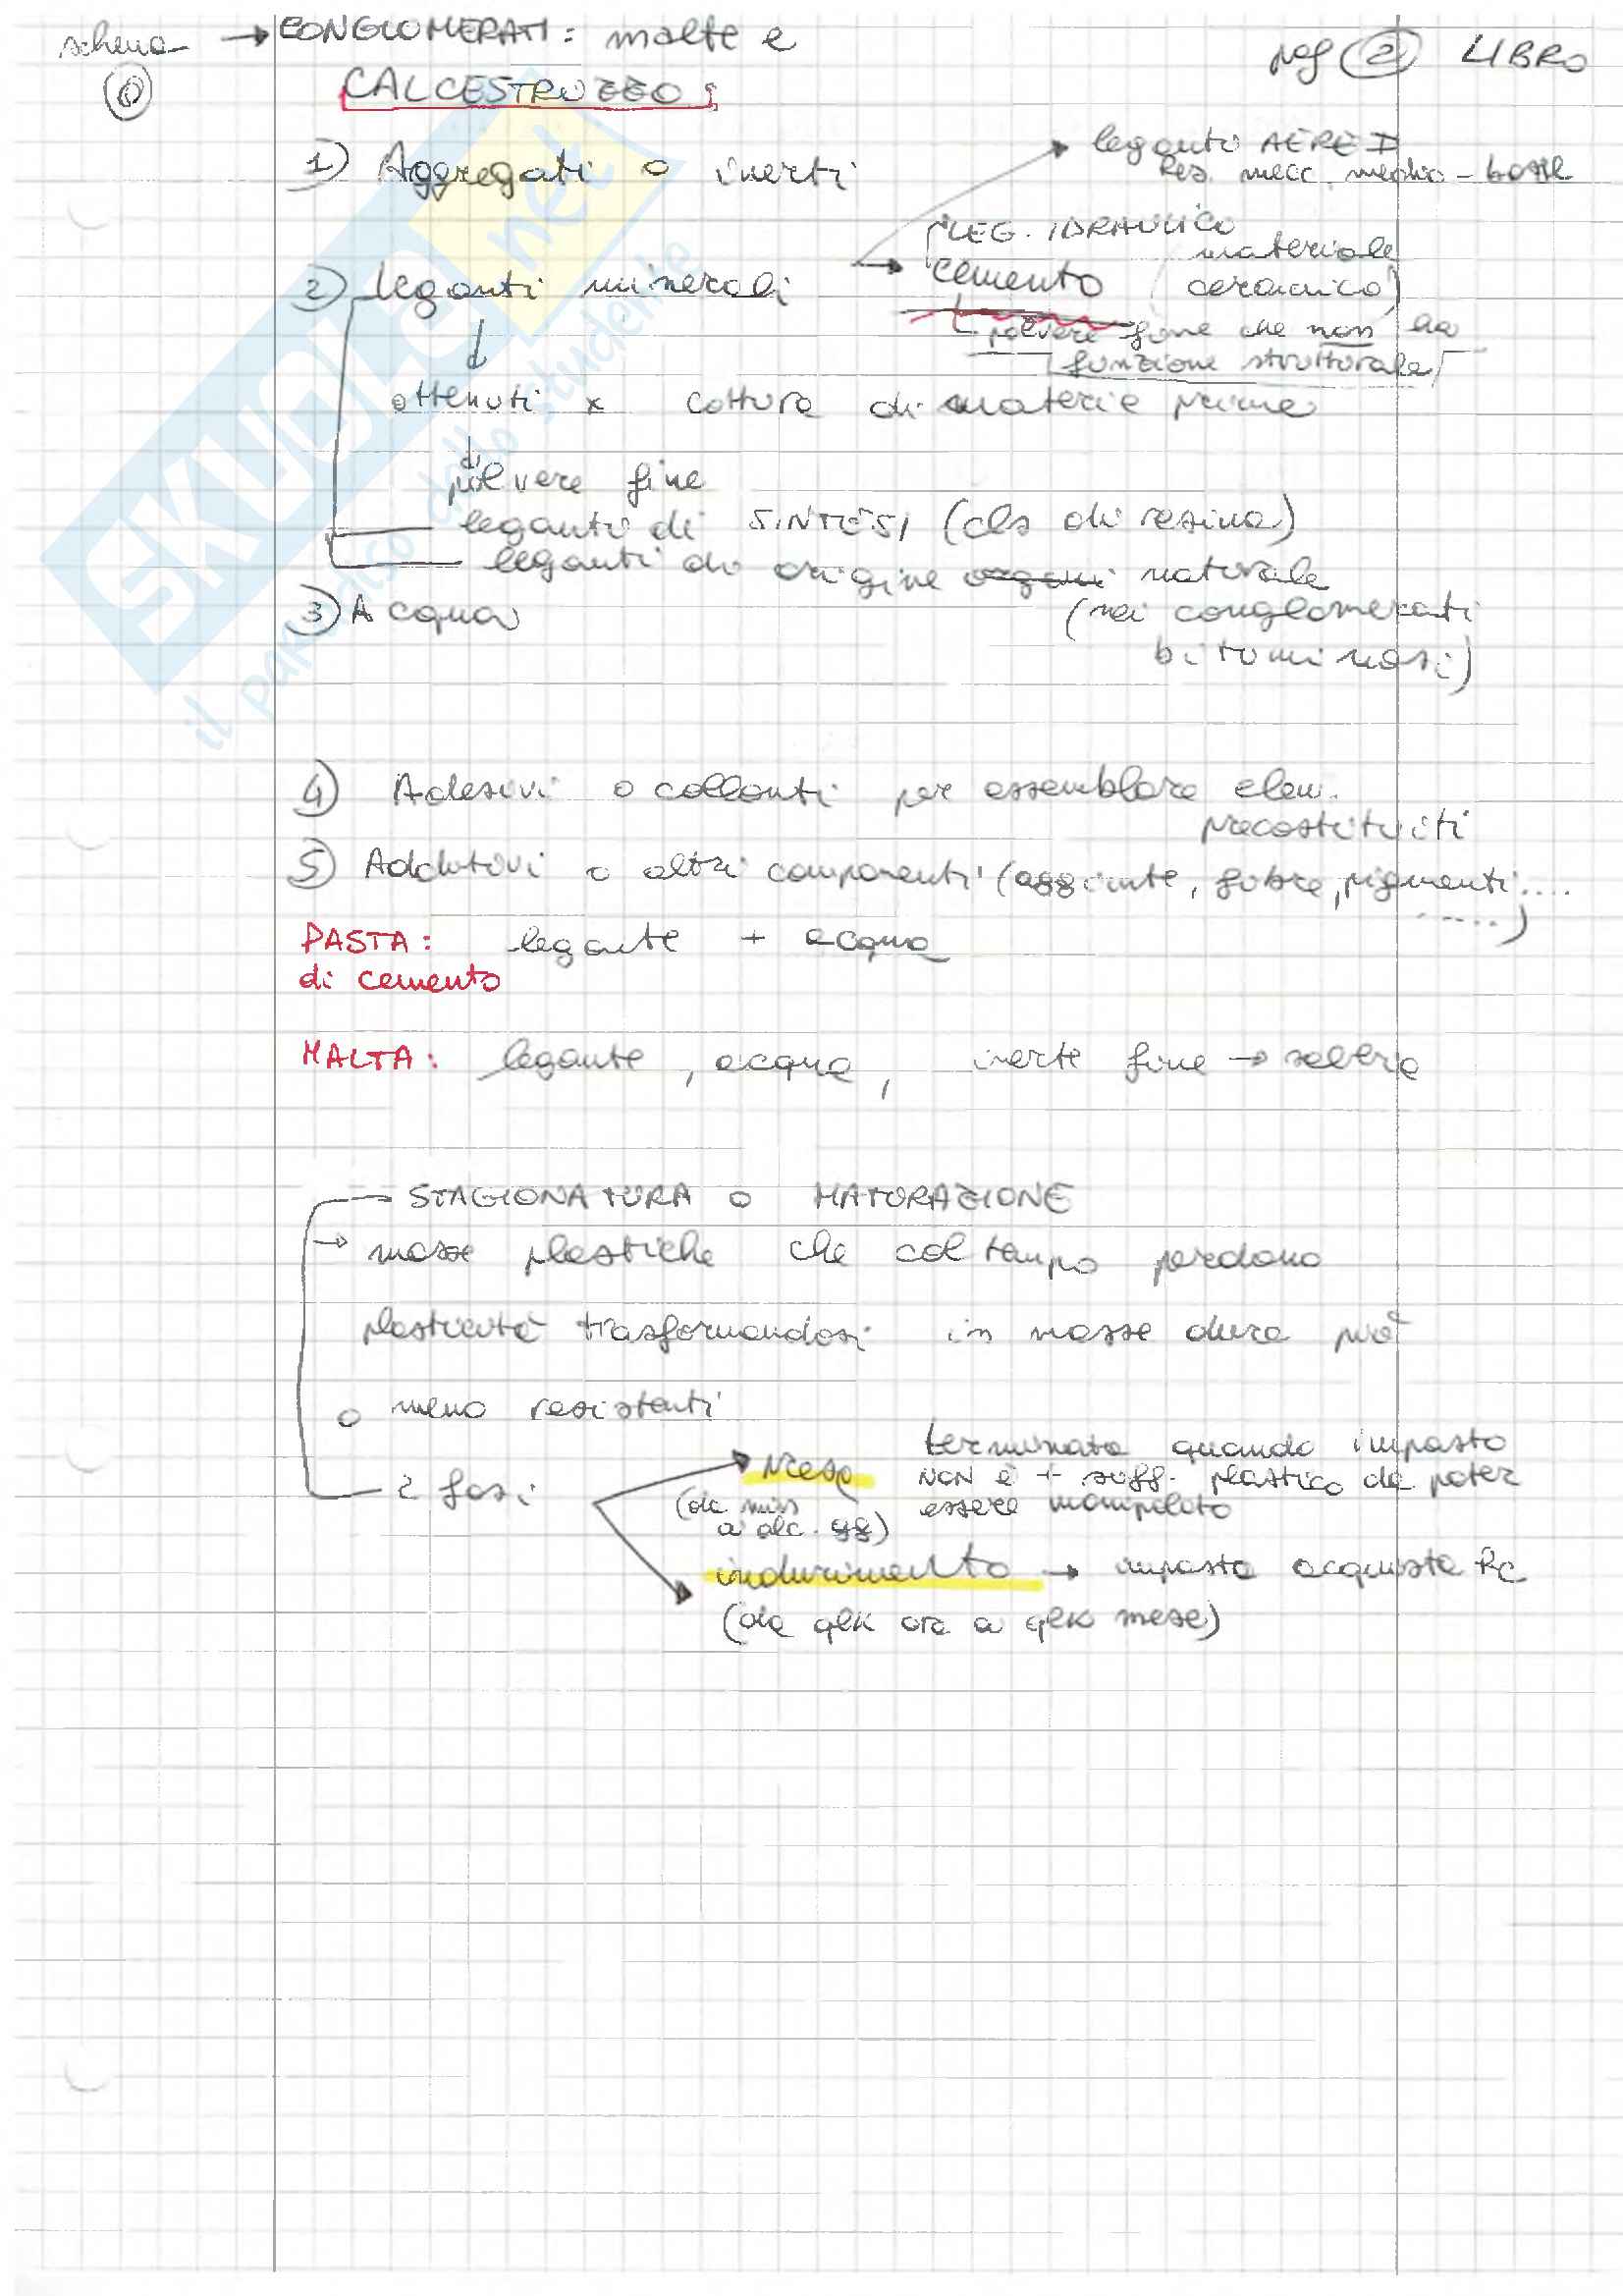 schema → CONGLOMERATI: malte e
① CALCESTRUZZO:
pag ② LIBRO
1) Aggregati o inerti
leganti AEREI
Res. mecc. medio-basse
LEG. IDRAULICO
2) leganti minerali → cemento (materiale ceramico)
polvere fine che non ha
funzione strutturale
ottenuti x cottura di materie prime
di
polvere fine
leganti di SINTESI (cls di resina)
leganti di origine organi naturale
3) Acqua
(nei conglomerati
bituminosi)
4) Adesivi o collanti per assemblare elem.
precostituiti
5) Additivi o altri componenti (aggiunte, fibre, pigmenti....
.....)
PASTA: legante + acqua
di cemento
MALTA: legante, acqua, inerte fine → sabbia
STAGIONATURA o MATURAZIONE
→ masse plastiche che col tempo perdono
plasticità trasformandosi in masse dure più
o meno resistenti
2 fasi
presa
(da min
a alc. gg)
terminata quando impasto
NON è + suff. plastico da poter
essere manipolato
indurimento → impasto acquista Rc
(da qlk ora a qlk mese)
SKUOLA.net
il paradiso dello studente